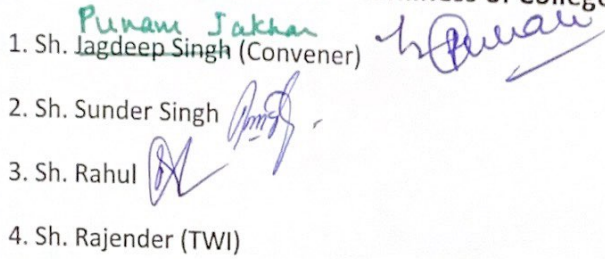 of College
Punam Jakhar
1. Sh. Jagdeep Singh (Convener)
2. Sh. Sunder Singh
3. Sh. Rahul
4. Sh. Rajender (TWI)